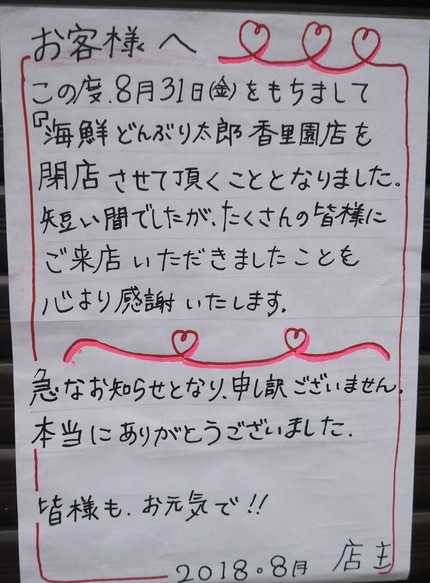 お客様へ
この度、8月31日(金)をもちまして
『海鮮どんぶり太郎 香里園店を
閉店させて頂くこととなりました。
短い間でしたが、たくさんの皆様に
ご来店いただきましたことを
心より感謝いたします。
急なお知らせとなり、申し訳ございません。
本当にありがとうございました。
皆様も、お元気で!!
2018。8月 店主